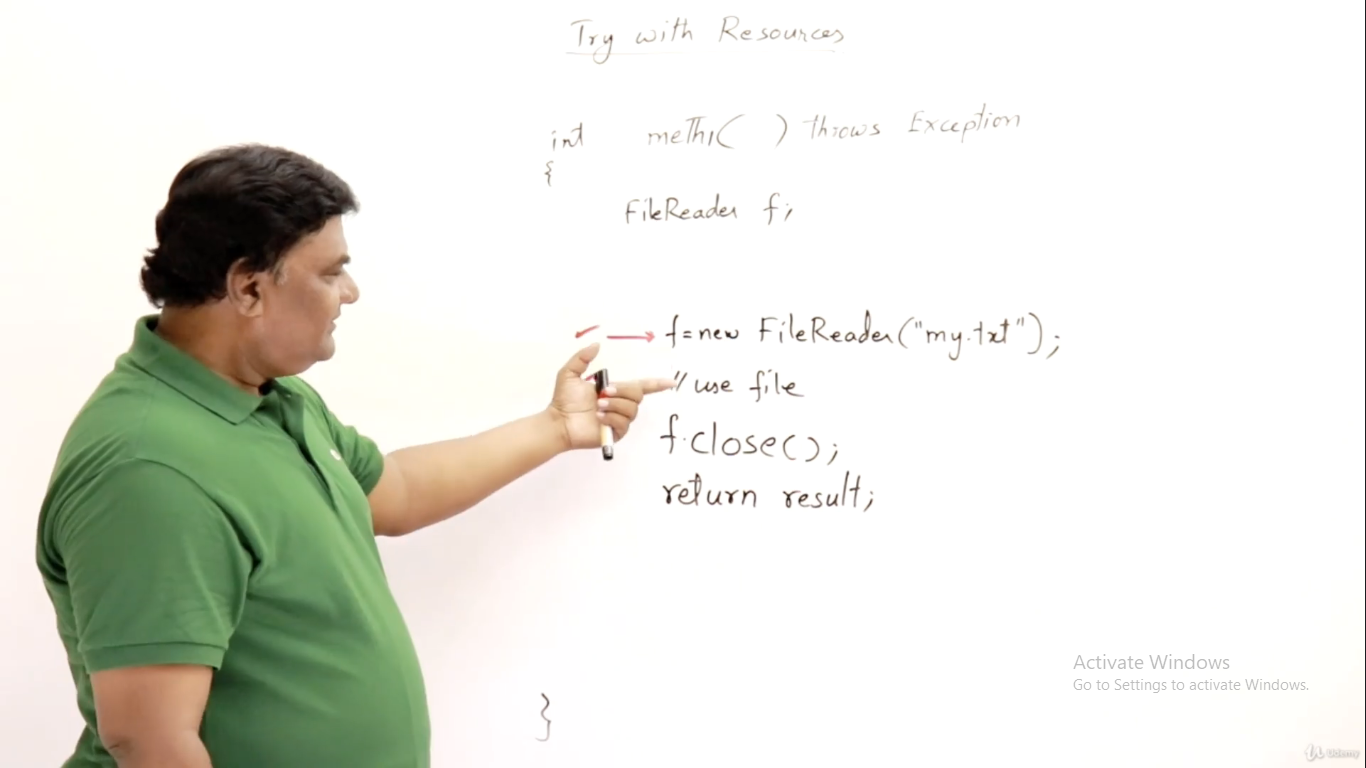 Try with Resources
int meth1( ) throws Exception
{
FileReader f;
f=new FileReader("my.txt");
// use file
f.close();
return result;
}
Activate Windows
Go to Settings to activate Windows.
Udemy